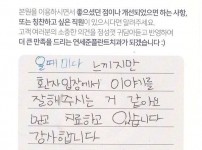 본원을 이용하시면서 좋으셨던 점이나 개선되었으면 하는 사항,
또는 칭찬하고 싶은 직원이 있으시다면 알려주세요.
고객 여러분의 소중한 의견을 정성껏 귀담아듣고 반영하여
더 큰 만족을 드리는 연세준플란트치과가 되겠습니다 :)
올때 마다 느끼지만
환자입장에서 이야기를
잘해주시는 거 같아요
믿고 진료하고 있습니다
감사합니다